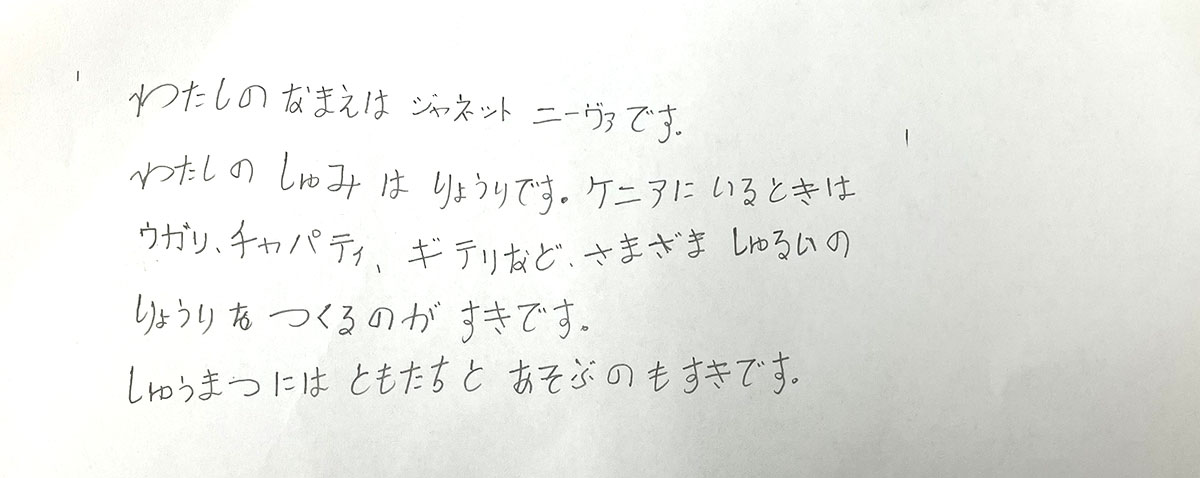 わたしの なまえは ジャネット ニーヴァです。
わたしの しゅみ は りょうりです。ケニアに いるときは
ウガリ、チャパティ、ギテリなど、さまざま しゅるいの
りょうりを つくるのが すきです。
しゅうまつには ともたちと あそぶのもすきです。